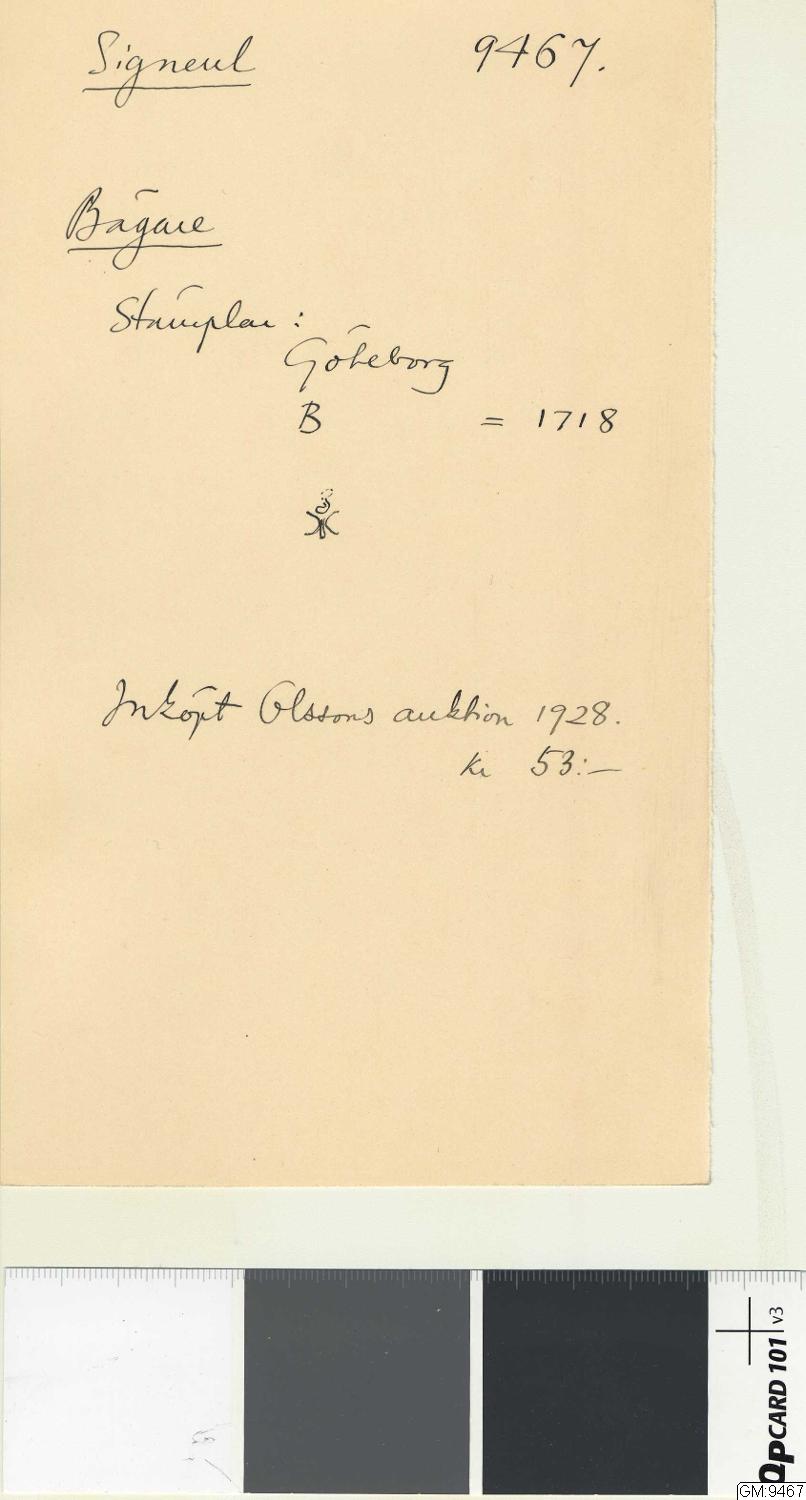 Signeul 9467.
Bägare
Stämplar:
Göteborg
B = 1718
Inköpt Olssons auktion 1928.
Kr 53:—
QPCARD 101 v3
GM:9467